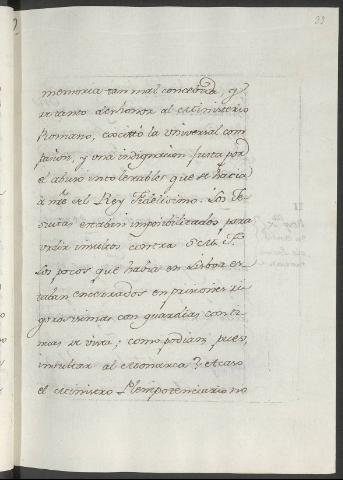 33
memoria tan mal concebida, y
de tanto deshonor al Ministerio
Romano, excitó la universal com
pasion, y una indignacion justa por
el abuso intolerable, que se hacia
a nre del Rey Fidelisimo. Los Je-
suitas estaban imposibilitados para
urdir insultos contra S. M. F.
Los pocos que habia en Lisboa es-
taban encerrados en prisiones ri-
gorosisimas con guardias conti-
nuas de vista; como podian, pues,
insultar al Monarca? Acaso
el Ministro Plenipotenciario no